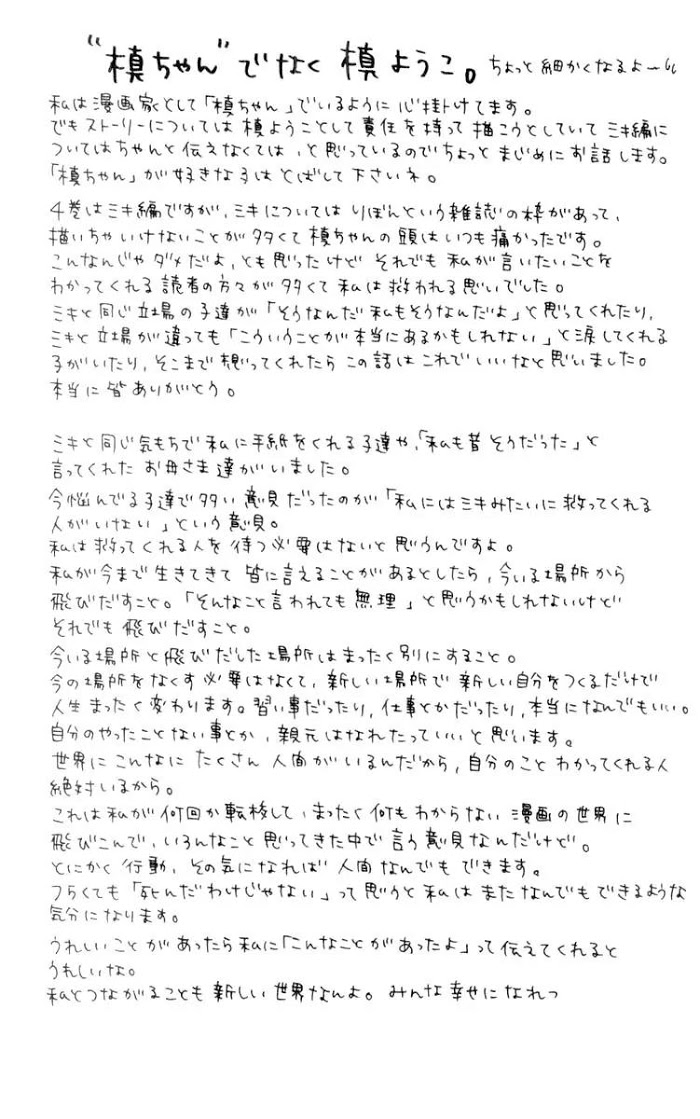 "槙ちゃん"でなく槙ようこ。ちょっと細かくなるよー
私は漫画家として「槙ちゃん」でいるように心掛けてます。
でもストーリーについては槙ようことして責任を持って描こうとしていてミキ編に
ついてはちゃんと伝えなくては、と思っているのでちょっとまじめにお話します。
「槙ちゃん」が好きな子はとばして下さいネ。
4巻はミキ編ですが、ミキについてはりぼんという雑誌の枠があって、
描いちゃいけないことが多くて槙ちゃんの頭はいつも痛かったです。
こんなんじゃダメだよ、とも思ったけどそれでも私が言いたいことを
わかってくれる読者の方々が多くて私は救われる思いでした。
ミキと同じ立場の子達が「そうなんだ私もそうなんだよ」と思ってくれたり、
ミキと立場が違っても「こういうことが本当にあるかもしれない」と涙してくれる
子がいたり、そこまで想ってくれたらこの話はこれでいいなと思いました。
本当に皆ありがとう。
ミキと同じ気もちで私に手紙をくれる子達や、「私も昔そうだった」と
言ってくれたお母さま達がいました。
今悩んでる子達で多い意見だったのが「私にはミキみたいに救ってくれる
人がいない」という意見。
私は救ってくれる人を待つ必要はないと思うんですよ。
私が今まで生きてきて皆に言えることがあるとしたら、今いる場所から
飛びだすこと。「そんなこと言われても無理」と思うかもしれないけど
それでも飛びだすこと。
今いる場所と飛びだした場所はまったく別にすること。
今の場所をなくす必要はなくて、新しい場所で新しい自分をつくるだけで
人生まったく変わります。習い事だったり、仕事とかだったり、本当になんでもいい。
自分のやったことない事とか、親元はなれたっていいと思います。
世界にこんなにたくさん人間がいるんだから、自分のことわかってくれる人
絶対いるから。
これは私が何回か転校して、まったく何もわからない漫画の世界に
飛びこんで、いろんなこと思ってきた中で言う意見なんだけど。
とにかく行動、その気になれば人間なんでもできます。
つらくても「死んだわけじゃない」って思うと私はまたなんでもできるような
気分になります。
うれしいことがあったら私に「こんなことがあったよ」って伝えてくれると
うれしいな。
私とつながることも新しい世界なんよ。みんな幸せになれっ